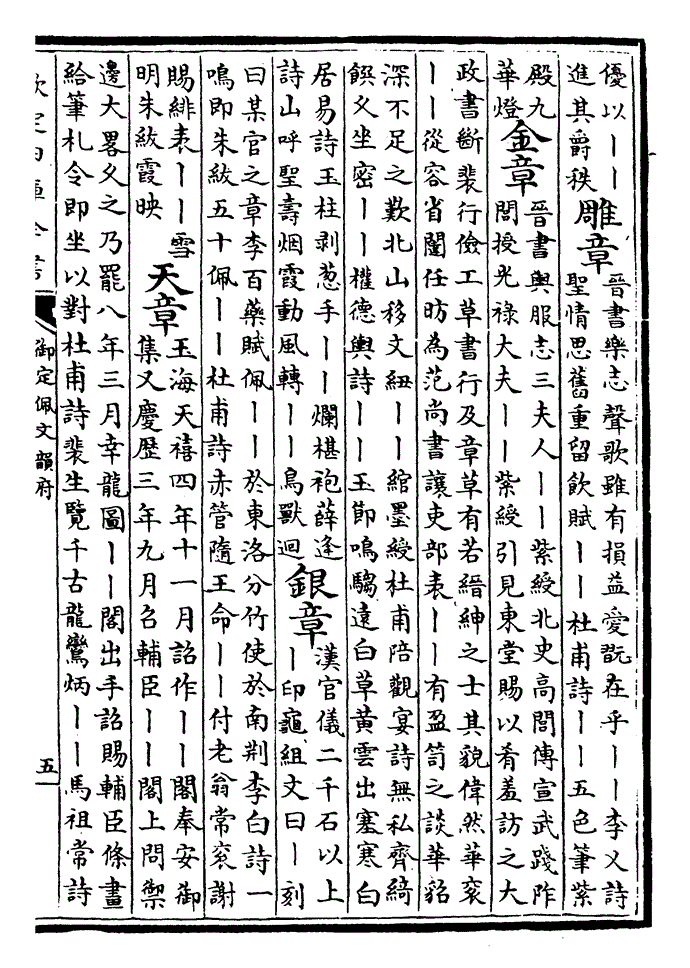 優以——
進其爵秩
雕章
晉書樂志聲歌雖有損益愛翫在乎——李乂詩
聖情思舊重留飲賦——杜甫詩——五色筆紫
殿九
華燈
金章
晉書輿服志三夫人——紫綬北史高閭傳宣武踐阼
閭授光祿大夫——紫綬引見東堂賜以肴羞訪之大
政書斷裴行儉工草書行及章草有若縉紳之士其貌偉然華衮
——從容省闥任昉為范尚書讓吏部表——有盈笥之談華貂
深不足之歎北山移文紐——綰墨綬杜甫陪觀宴詩無私齊綺
饌久坐密——權德輿詩——玉節鳴騶遠白草黃雲出塞寒白
居易詩玉柱剥葱手——爛椹袍薛逢
詩山呼聖壽烟霞動風轉——鳥獸迴
銀章
漢官儀二千石以上
—印龜組文曰—刻
曰某官之章李百藥賦佩——於東洛分竹使於南荆李白詩一
鳴即朱紱五十佩——杜甫詩赤管隨王命——付老翁常衮謝
賜緋表——雪
明朱紱霞映
天章
玉海天禧四年十一月詔作——閣奉安御
集又慶歴三年九月召輔臣——閣上問禦
邊大畧久之乃罷八年三月幸龍圖——閣出手詔賜輔臣條畫
給筆札令即坐以對杜甫詩裴生覽千古龍鸞炳——馬祖常詩
欽定四庫全書
御定佩文韻府
五